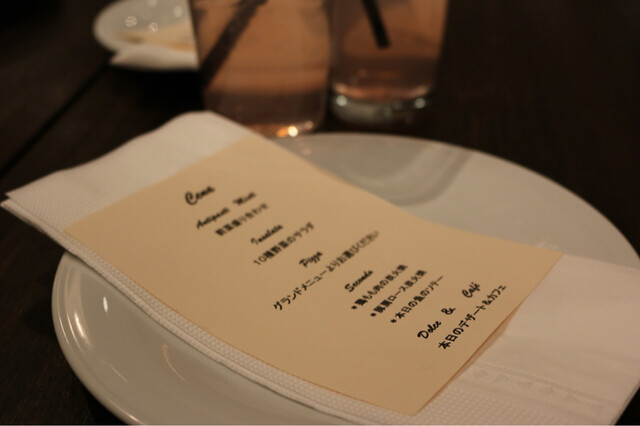 Cena
Antipasti Misti
前菜盛り合わせ
Insalata
10種野菜のサラダ
Pizza
グランドメニューよりお選びください
Secondo
*鶏もも肉の炭火焼
*豚肩ロース炭火焼
*本日の魚のソテー
Dolce & Café
本日のデザート&カフェ